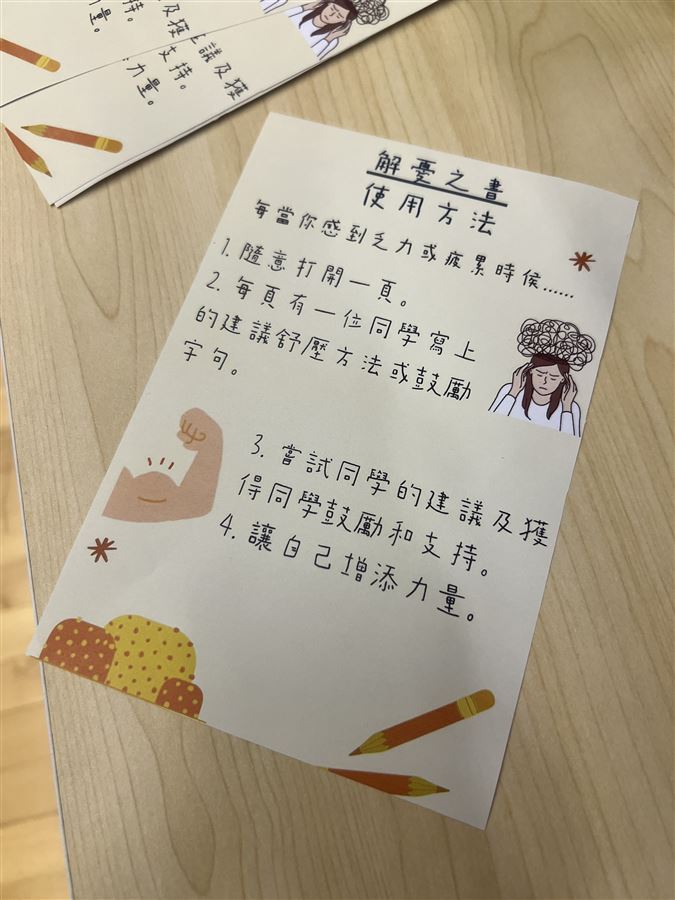 量。
及獲
支持。
議及獲
支持。
力量。
解憂之書
使用方法
每當你感到乏力或疲累時侯......
1. 隨意打開一頁。
2. 每頁有一位同學寫上
的建議舒壓方法或鼓勵
字句。
3. 嘗試同學的建議及獲
得同學鼓勵和支持。
4. 讓自己增添力量。